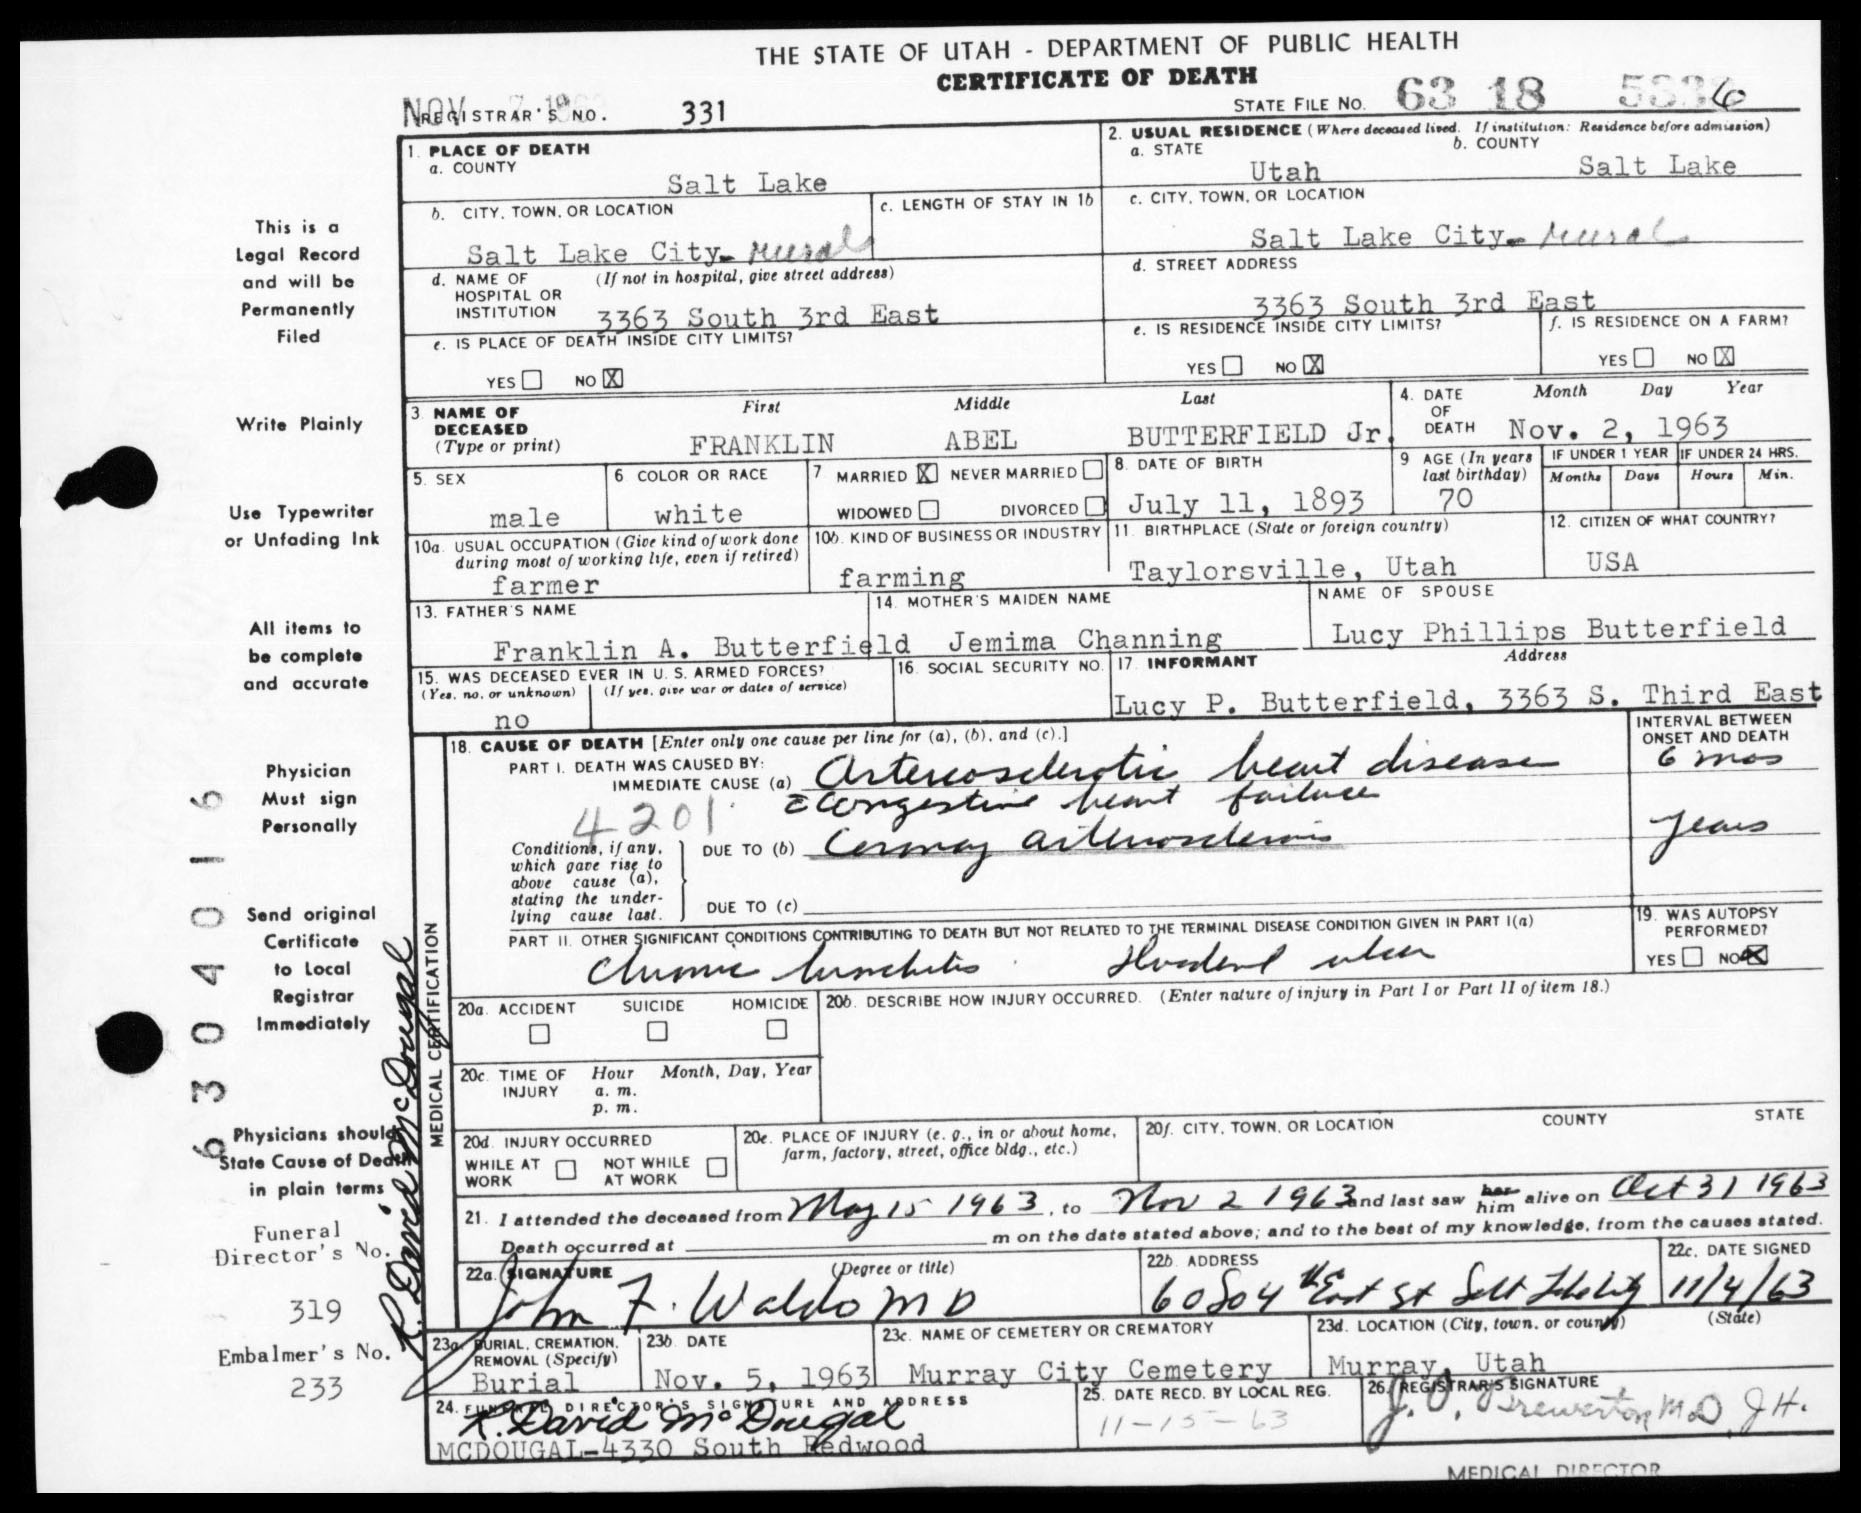 THE STATE OF UTAH - DEPARTMENT OF PUBLIC HEALTH
CERTIFICATE OF DEATH
NOV 7 196
REGISTRAR'S NO. 331
STATE FILE NO. 63 18 5336
1. PLACE OF DEATH
a. COUNTY
Salt Lake
2. USUAL RESIDENCE (Where deceased lived. If institution: Residence before admission)
a. STATE
Utah
b. COUNTY
Salt Lake
b. CITY, TOWN, OR LOCATION
Salt Lake City - rural
c. LENGTH OF STAY IN 1b
c. CITY, TOWN, OR LOCATION
Salt Lake City - rural
d. NAME OF HOSPITAL OR INSTITUTION
(If not in hospital, give street address)
3363 South 3rd East
d. STREET ADDRESS
3363 South 3rd East
e. IS PLACE OF DEATH INSIDE CITY LIMITS?
YES NO X
e. IS RESIDENCE INSIDE CITY LIMITS?
YES NO X
f. IS RESIDENCE ON A FARM?
YES NO X
3. NAME OF DECEASED
(Type or print)
First Middle Last
FRANKLIN ABEL BUTTERFIELD Jr.
4. DATE OF DEATH
Month Day Year
Nov. 2, 1963
5. SEX
male
6 COLOR OR RACE
white
7 MARRIED X NEVER MARRIED
WIDOWED DIVORCED
8. DATE OF BIRTH
July 11, 1893
9 AGE (In years last birthday)
70
IF UNDER 1 YEAR
Months Days
IF UNDER 24 HRS.
Hours Min.
10a. USUAL OCCUPATION (Give kind of work done during most of working life, even if retired)
farmer
10b. KIND OF BUSINESS OR INDUSTRY
farming
11. BIRTHPLACE (State or foreign country)
Taylorsville, Utah
12. CITIZEN OF WHAT COUNTRY?
USA
13. FATHER'S NAME
Franklin A. Butterfield
14. MOTHER'S MAIDEN NAME
Jemima Channing
NAME OF SPOUSE
Lucy Phillips Butterfield
15. WAS DECEASED EVER IN U. S. ARMED FORCES?
(Yes, no, or unknown) (If yes, give war or dates of service)
no
16. SOCIAL SECURITY NO.
17. INFORMANT Address
Lucy P. Butterfield, 3363 S. Third East
MEDICAL CERTIFICATION
18. CAUSE OF DEATH [Enter only one cause per line for (a), (b), and (c).]
INTERVAL BETWEEN ONSET AND DEATH
PART I. DEATH WAS CAUSED BY:
IMMEDIATE CAUSE (a) Arteriosclerotic heart disease
6 mos
c congestive heart failure
4201
Conditions, if any, which gave rise to above cause (a), stating the underlying cause last.
DUE TO (b) Coronary arteriosclerosis
years
DUE TO (c)
PART II. OTHER SIGNIFICANT CONDITIONS CONTRIBUTING TO DEATH BUT NOT RELATED TO THE TERMINAL DISEASE CONDITION GIVEN IN PART I(a)
Chronic bronchitis Duodenal ulcer
19. WAS AUTOPSY PERFORMED?
YES NO X
20a. ACCIDENT SUICIDE HOMICIDE
20b. DESCRIBE HOW INJURY OCCURRED. (Enter nature of injury in Part I or Part II of item 18.)
20c. TIME OF INJURY
Hour Month, Day, Year
a. m.
p. m.
20d. INJURY OCCURRED
WHILE AT WORK NOT WHILE AT WORK
20e. PLACE OF INJURY (e. g., in or about home, farm, factory, street, office bldg., etc.)
20f. CITY, TOWN, OR LOCATION COUNTY STATE
21. I attended the deceased from May 15 1963, to Nov 2 1963 and last saw her him alive on Oct 31 1963
Death occurred at m on the date stated above; and to the best of my knowledge, from the causes stated.
22a. SIGNATURE (Degree or title)
John F. Waldo MD
22b. ADDRESS
60 So 4th East St Salt Lake City
22c. DATE SIGNED
11/4/63
23a. BURIAL, CREMATION, REMOVAL (Specify)
Burial
23b. DATE
Nov. 5, 1963
23c. NAME OF CEMETERY OR CREMATORY
Murray City Cemetery
23d. LOCATION (City, town, or county) (State)
Murray, Utah
24. FUNERAL DIRECTOR'S SIGNATURE AND ADDRESS
R. David McDougal
MCDOUGAL-4330 South Redwood
25. DATE RECD. BY LOCAL REG.
11-15-63
26. REGISTRAR'S SIGNATURE
J. O. Brewerton MD JH.
MEDICAL DIRECTOR
This is a
Legal Record
and will be
Permanently
Filed
Write Plainly
Use Typewriter
or Unfading Ink
All items to
be complete
and accurate
Physician
Must sign
Personally
Send original
Certificate
to Local
Registrar
Immediately
Physicians should
State Cause of Death
in plain terms
Funeral
Director's No.
319
Embalmer's No.
233
63040 16
R. David McDougal